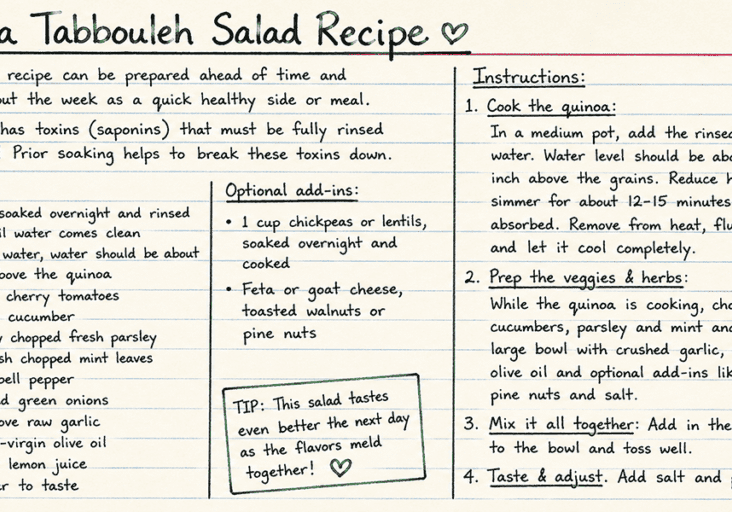 a Tabbouleh Salad Recipe ♡
recipe can be prepared ahead of time and
out the week as a quick healthy side or meal.
has toxins (saponins) that must be fully rinsed
Prior soaking helps to break these toxins down.
soaked overnight and rinsed
il water comes clean
water, water should be about
bove the quinoa
cherry tomatoes
cucumber
y chopped fresh parsley
sh chopped mint leaves
bell pepper
d green onions
ove raw garlic
-virgin olive oil
lemon juice
er to taste
Optional add-ins:
• 1 cup chickpeas or lentils,
soaked overnight and
cooked
• Feta or goat cheese,
toasted walnuts or
pine nuts
TIP: This salad tastes
even better the next day
as the flavors meld
together! ♡
Instructions:
1. Cook the quinoa:
In a medium pot, add the rinsed
water. Water level should be abo
inch above the grains. Reduce h
simmer for about 12-15 minutes
absorbed. Remove from heat, flu
and let it cool completely.
2. Prep the veggies & herbs:
While the quinoa is cooking, cho
cucumbers, parsley and mint and
large bowl with crushed garlic,
olive oil and optional add-ins lik
pine nuts and salt.
3. Mix it all together: Add in the
to the bowl and toss well.
4. Taste & adjust. Add salt and